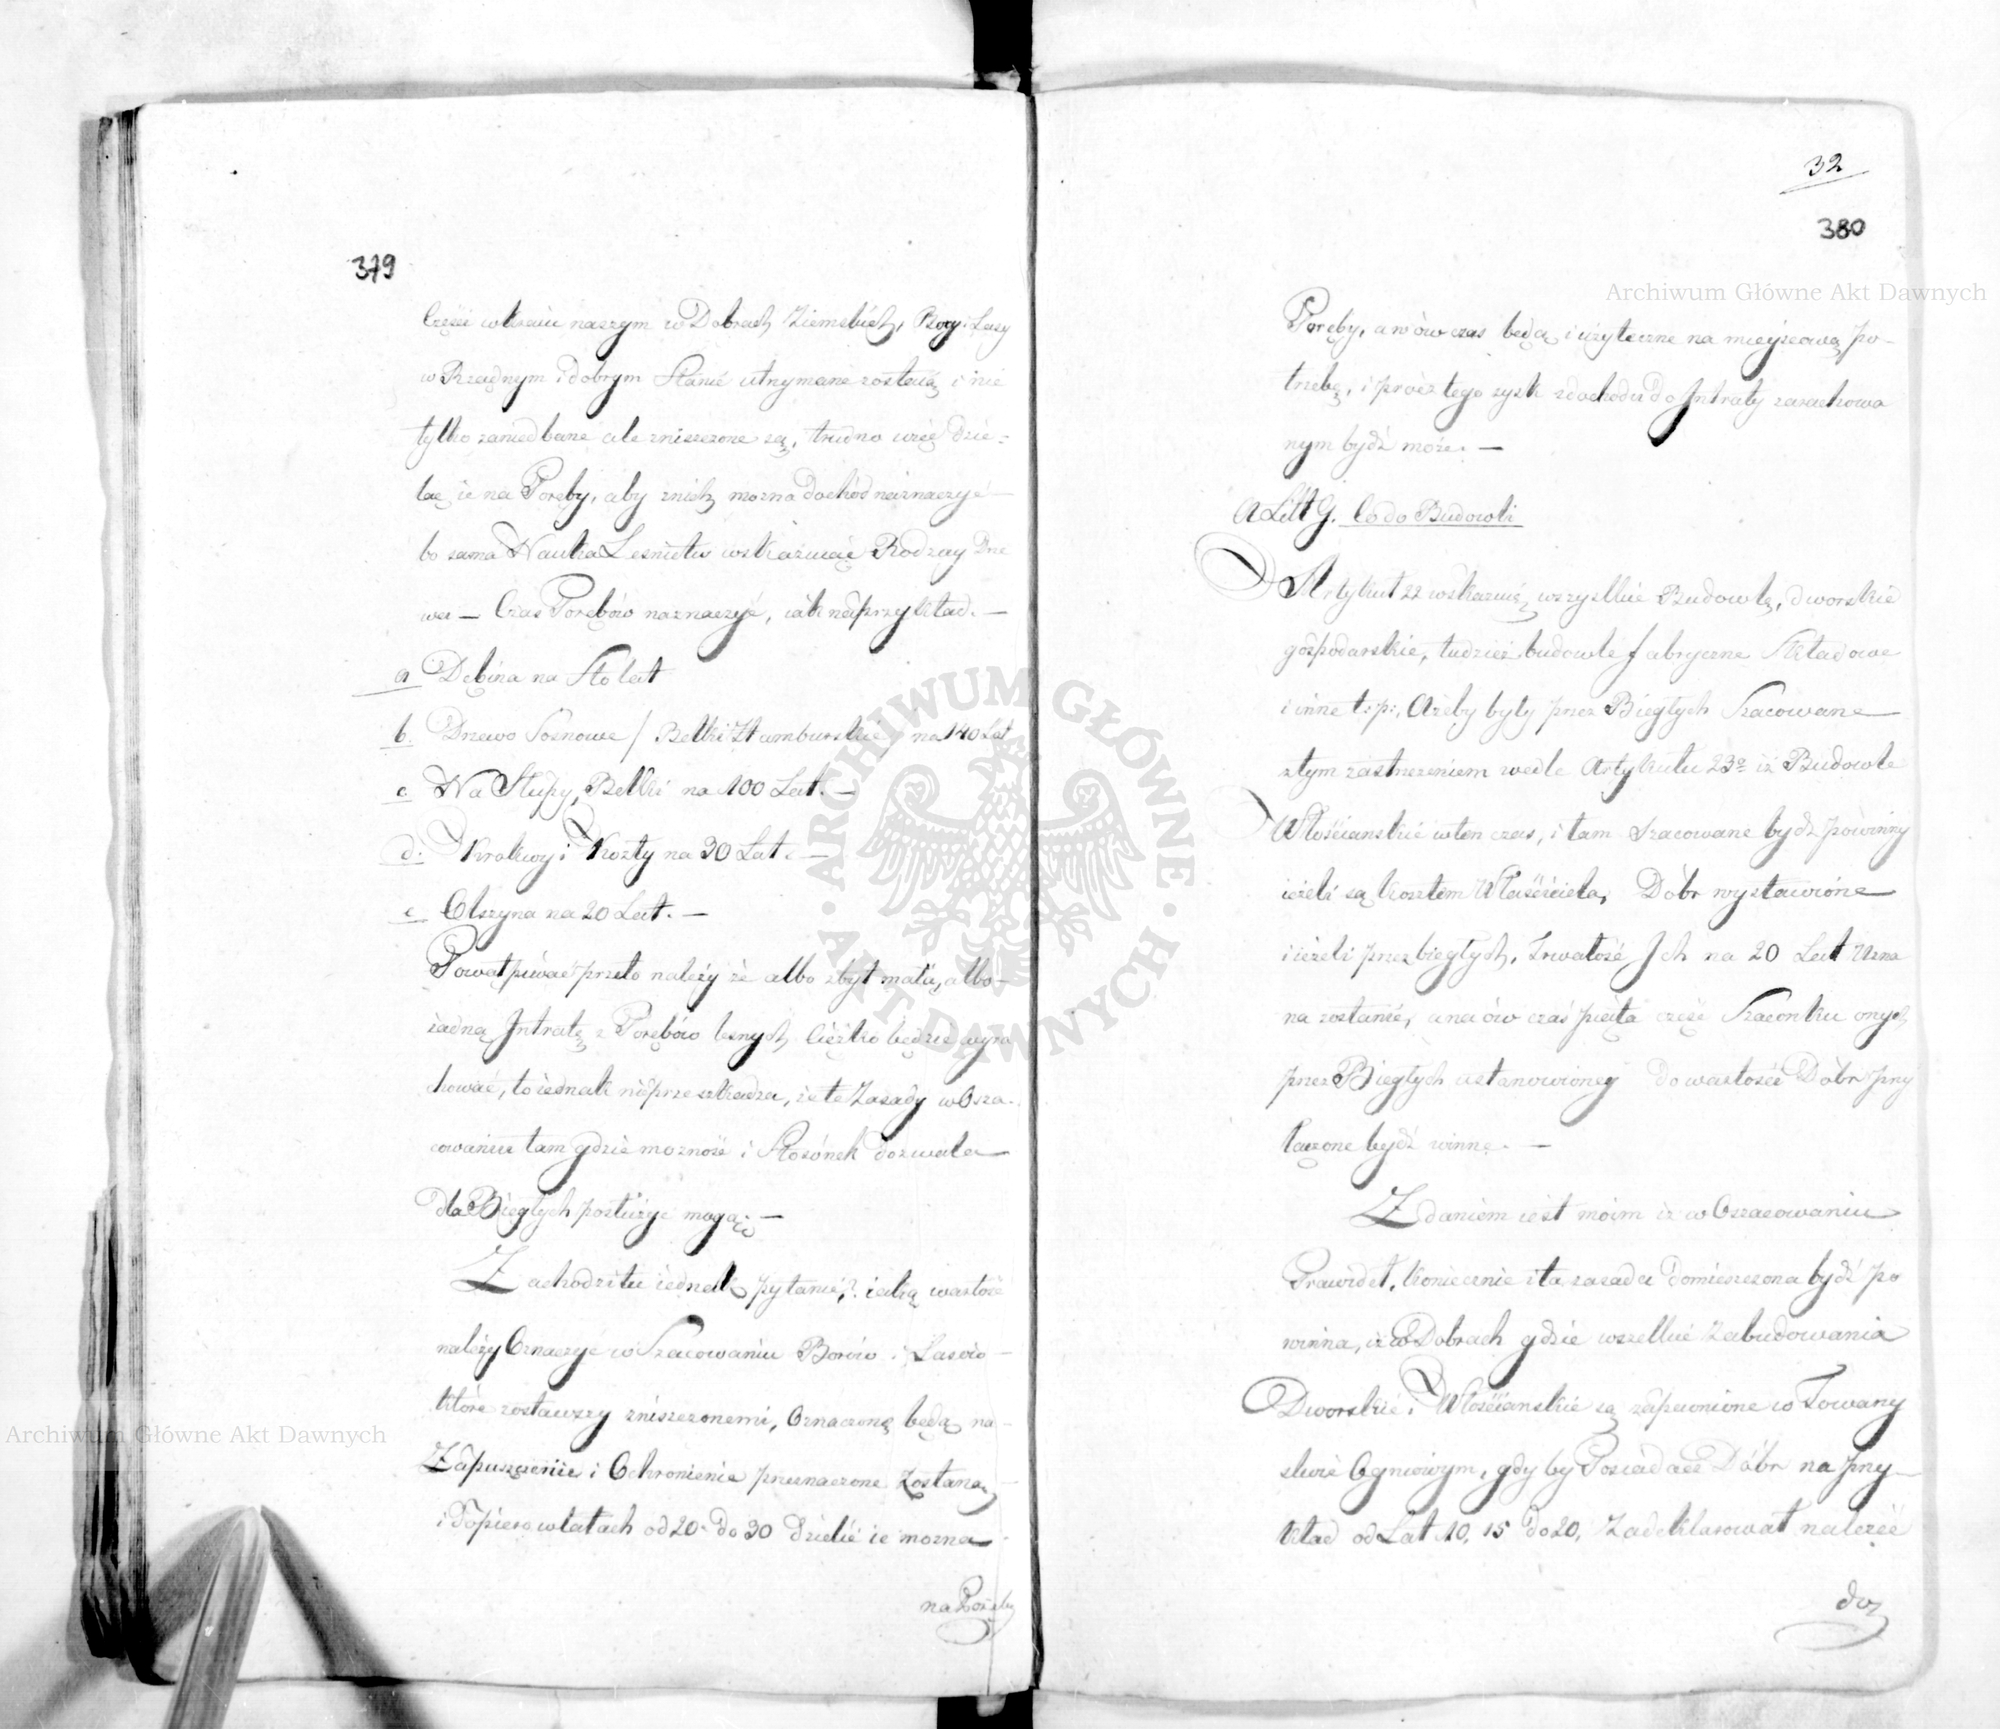 379
Części w kraiu naszym w Dobrach Ziemskich, Bory i Lasy
w Rządnym i dobrym Stanie utrzymane zostaią i nie
tylko zaniedbane ale zniszczone są, trudno więc dzie-
lić ie na Poręby, aby z nich można dochód naznaczyć
bo sama Nauka Leśnictw wskazuiąc Rodzay Drze
wa — Czas Porębów naznaczyć, iak naprzykład. —
a Dębina na Sto lat
b. Drzewo Sosnowe / Belki Hamburskie / na 140 Lat
c Na Słupy, Belki na 100 Lat. —
d: Krokwy i Kozły na 30 Lat. —
e Olszyna na 20 Lat. —
Powątpiwać przeto należy że albo zbyt małą, albo
żadną Intratę z Porębów leśnych ciężko będzie wyra
chować, to iednak nieprzeszkadza, że te Zasady w Osza-
cowaniu tam gdzie możność i Stosónek dozwala
dla Biegłych posłużyć mogą. —
Zachodzi tu iednak pytanie? iaką wartość
należy Oznaczyć w Szacowaniu Borów i Lasów
które zostawszy zniszczonemi, Oznaczone będą na
Zapuszczenie i Ochronienie przeznaczone zostaną
i dopiero w latach od 20 do 30 dzielić ie można
na Poręby
32
380
Poręby, a wów czas będą i użyteczne na mieyscową po-
trzebę, i prócz tego zysk z dochodu do Intraty zarachowa
nym bydź może. —
A Litt G. Co do Budowli
Artykuł 22 wskazuię wszystkie Budowlę, dworskie
gospodarskie, tudzież budowle fabryczne Składowe
i inne t: p:, Ażeby były przez Biegłych Szacowane
z tym zastrzeżeniem wedle Artykułu 23º iż Budowle
Włościanskie w ten czas, i tam Szacowane bydź powinny
ieżeli są kosztem Właściciela, Dóbr wystawione
i ieżeli przez biegłych, Trwałość Ich na 20 Lat Uzna
na zostanie, a na ów czas piąta część Szacunku onych
przez Biegłych ustanowioney do wartości Dóbr przy
łączone bydź winne. —
Zdaniem iest moim iż w Oszacowaniu
Prawideł, koniecznie i ta zasada domieszczona bydź po
winna, iż w Dobrach gdzie wszelkie Zabudowania
Dworskie i Włościanskie są zapewnione w Towarzy
stwie Ogniowym, gdy by Posiadacz Dóbr na przy-
kład od Lat 10, 15 do 20, Zadeklarował należeć
do
Archiwum Główne Akt Dawnych
Archiwum Główne Akt Dawnych
ARCHIWUM GŁÓWNE · AKT DAWNYCH ·